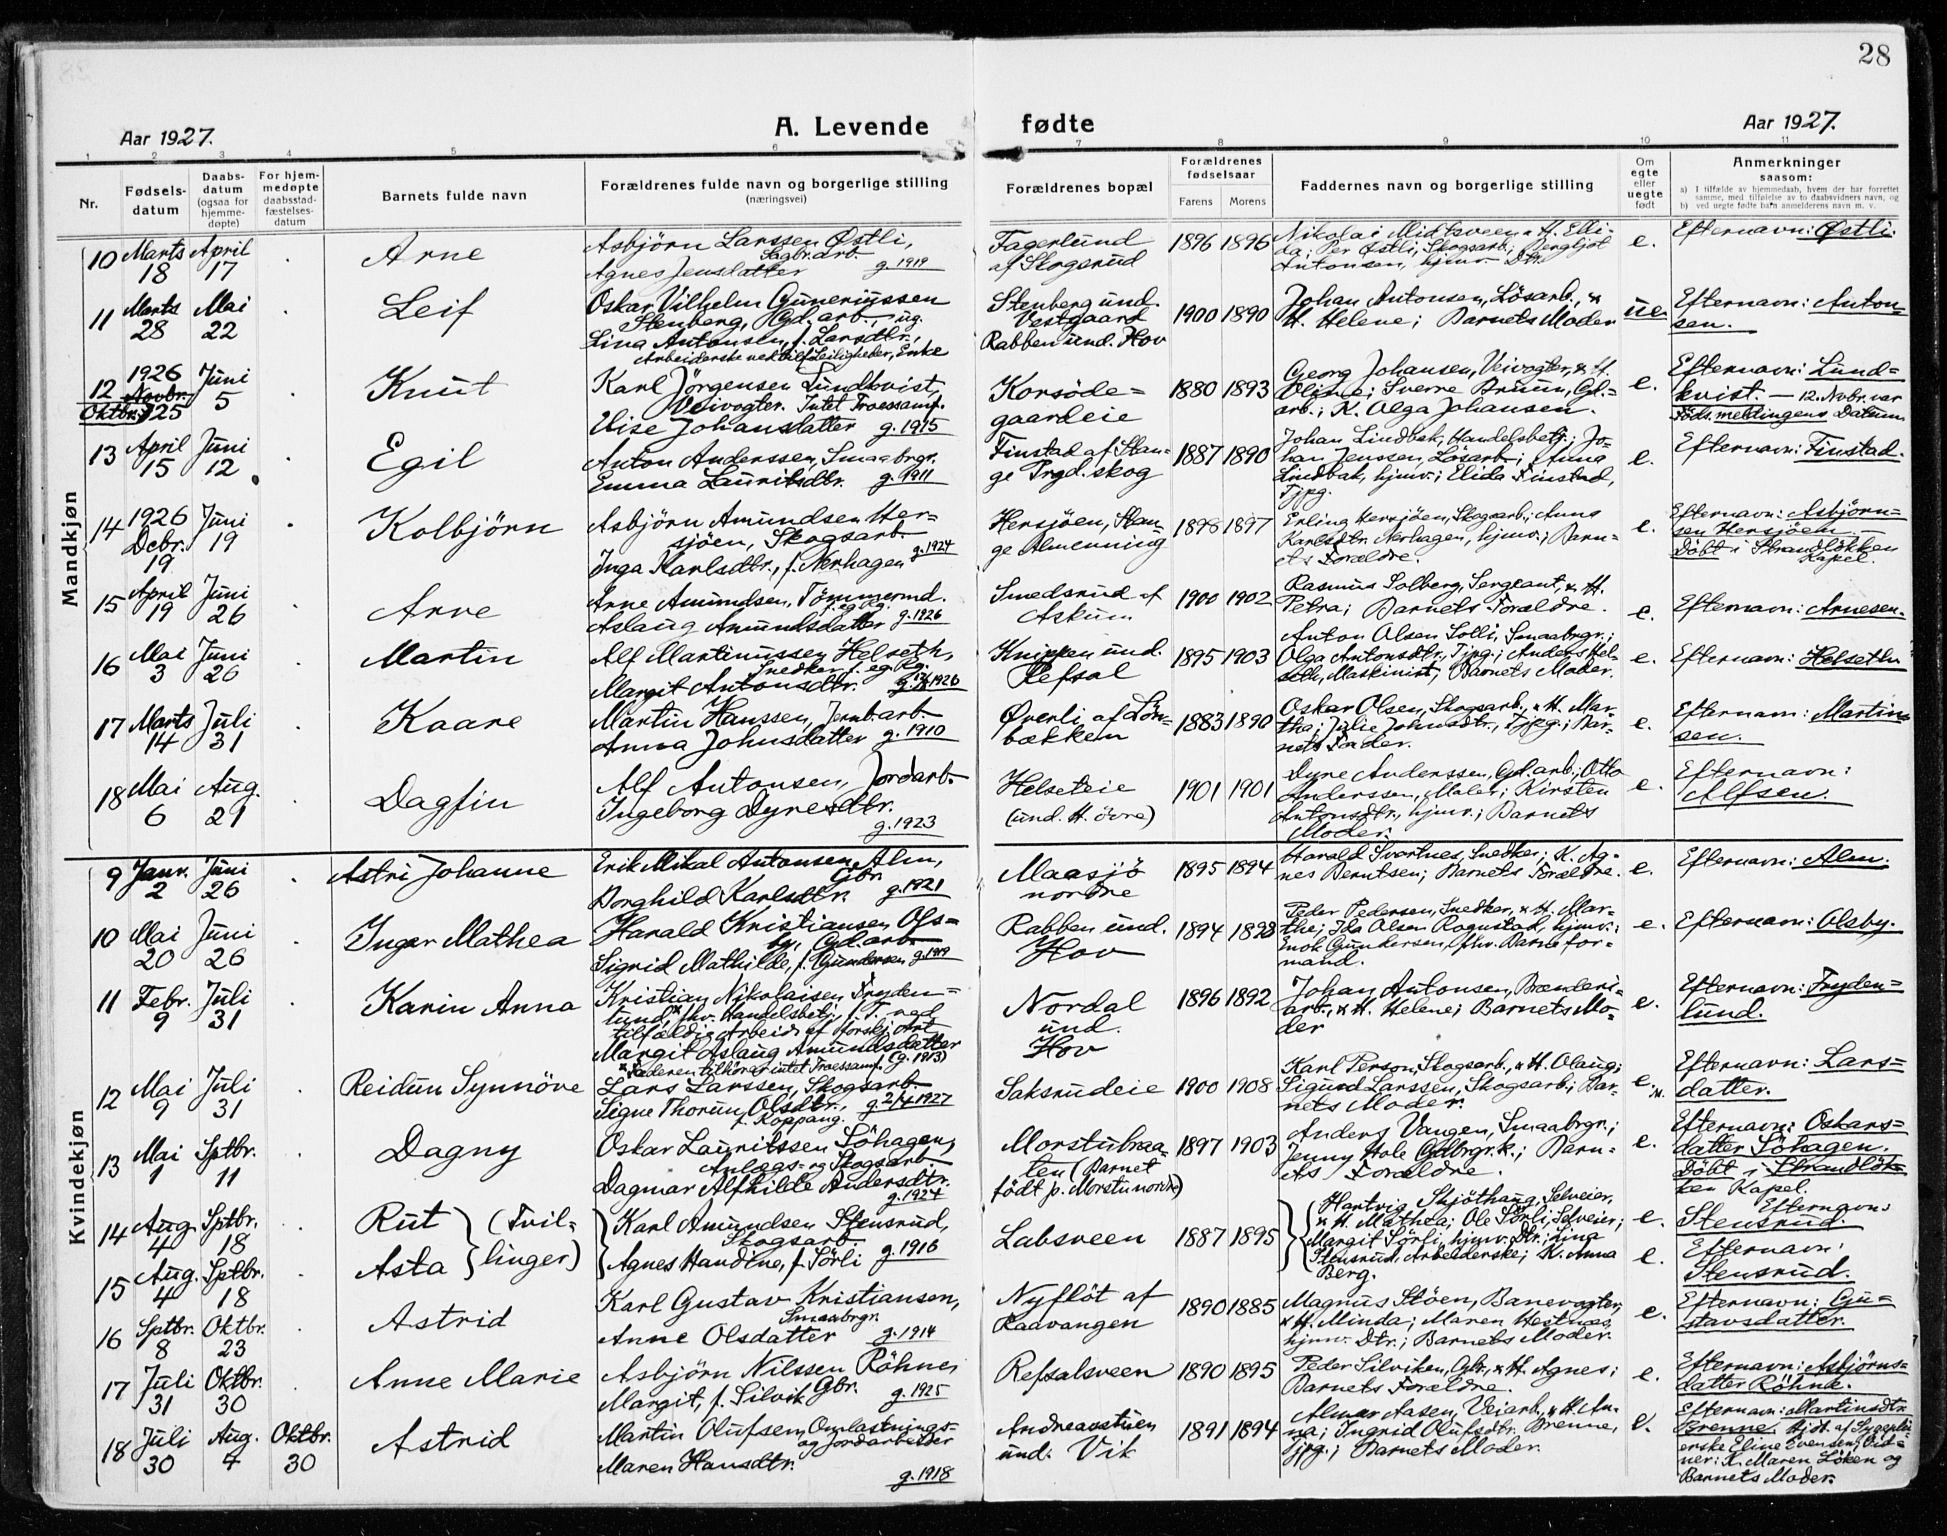 28
Aar 1927.
A. Levende fødte
Aar 1927.
1 2 3 4 5 6 7 8 9 10 11
Nr.
Fødsels-
datum
Daabs-
datum
(ogsaa for
hjemme-
døpte)
For hjem-
medøpte
daabsstad-
fæstelses-
datum
Barnets fulde navn
Forældrenes fulde navn og borgerlige stilling
(næringsvei)
Forældrenes bopæl
Forældrenes
fødselsaar
Farens Morens
Faddernes navn og borgerlige stilling
Om
egte
eller
uegte
født
Anmerkninger
saasom:
a) I tilfælde av hjemmedaab, hvem der har forrettet
samme, med tilføielse av to daabsvidners navn, og
b) ved uegte fødte barn anmelderens navn m. v.
Mandkjøn
10 Marts 18 April 17
Arne
Asbjörn Larssen Østli,
Sagbr.arb.
Agnes Jensdatter g. 1919
Fagerlund
af Skogerud
1896 1896
Nikolai Midtsveen & H. Elli-
da; Per Østli, Skogsarb.; Bergljot
Antonsen, hjmv. Dtr.
e.
Efternavn: Østli.
11 Marts 28 Mai 22
Leif
Oskar Vilhelm Guneriussen
Stenberg, Gd.arb., ug.
Lina Antonsen, f. Larsdtr.,
Arbeiderske ved tilf. Leiligheder, Enke
Stenberg und.
Vestgaard
Rabben und. Hov
1900 1890
Johan Antonsen, Lösarb., &
H. Helene; Barnets Moder
ue.
Efternavn: Anton-
sen.
12 1926 Novbr. Oktbr. 25 Juni 5
Knut
Karl Jörgensen Lundkvist,
Veivogter. Intet Troessamf.
Elise Johansdatter g. 1915
Korsöde-
gaardeie
1880 1893
Georg Johansen, Veivogter, & H.
Oline; Sverre Bruun, Gd.-
arb.; K. Olga Johansen.
e.
Efternavn: Lund-
kvist. — 12. Novbr. var
Föds. meldingens Datum
13 April 15 Juni 12
Egil
Anton Anderssen, Smaabrgr.
Emma Lauritsdtr. g. 1911
Finstad af Stan-
ge Prgd. skog
1887 1890
Johan Lindbak, Handelsbetj.; Jo-
han Jenssen, Lösarb.; Anna
Lindbak, hjmv.; Elida Finstad,
Tjpg.
e.
Efternavn: Finstad.
14 1926 Debr. 19 Juni 19
Kolbjörn
Asbjörn Amundsen Her-
sjöen, Skogsarb.
Inga Karlsdtr., f. Nerhagen g. 1924
Hersjöen, Stan-
ge Almenning
1898 1897
Erling Hersjöen, Skogsarb.; Anna
Karlsdtr. Nerhagen, hjmv.; Barn-
ets Forældre.
e.
Efternavn: Asbjörn-
sen Hersjöen —
Döbt i Strandlökken
Kapel.
15 April 19 Juni 26
Arve
Arne Amundsen, Tömmermd.
f. eg. Rg.
Aslaug Amundsdatter g. 1926
Smedsrud af
Askum
1900 1902
Rasmus Solberg, Sergeant, & H.
Petra; Barnets Forældre.
e.
Efternavn: Arnesen.
16 Mai 3 Juni 26
Martin
Alf Martinussen Helseth,
Snedker f. eg. Rg.
Margit Antonsdtr. g. 1926
Knippen und.
Refsal
1895 1903
Anton Olsen Solli, Smaabrgr.;
Olga Antonsdtr., Tjpg.; Anders Hel-
seth, Maskinist; Barnets Moder.
e.
Efternavn: Helseth
17 Marts 14 Juli 31
Kaare
Martin Hanssen, Jernb.arb.
Anna Johnsdatter g. 1910
Överli af Lön-
bækken
1883 1890
Oskar Olsen, Skogsarb., & H. Mar-
tha; Julie Johnsdtr., Tjpg.; Bar-
nets Fader.
e.
Efternavn: Martin-
sen.
18 Mai 6 Aug. 21
Dagfin
Alf Antonsen, Jordarb.
Ingeborg Dyresdtr.
g. 1923
Helseteie
(und. H. övre)
1901 1901
Dyre Anderssen, Gd.arb.; Otto
Anderssen, Maler; Kirsten
Antonsdtr., hjmv.; Barnets
Moder.
e.
Efternavn:
Alfsen.
Kvindekjøn
9 Janr. 2 Juni 26
Astri Johanne
Erik Mikal Antonsen Alm,
Gbr.
Borghild Karlsdtr. g. 1921
Maasjö
nordre
1895 1894
Harald Svartnes, Snedker; K. Ag-
nes Berntsen; Barnets Forældre.
e.
Efternavn: Alm.
10 Mai 20 Juni 26
Inger Mathea
Harald Kristiansen Ols-
by, Gd.arb.
Sigrid Mathilde, f. Gundersen g. 1919
Rabben und.
Hov
1894 1898
Peder Pedersen, Snedker, & H. Mar-
the; Ida Olsen Rogustad, hjmv.;
Enok Gundersen, fhv. Baneför-
mand.
e.
Efternavn: Olsby.
11 Febr. 9 Juli 31
Karin Anna
Kristian Nikolaisen Fryden-
lund,* fhv. Handelsbetj., f. T. ved
tilfældig Arbeide af forskj. Art
Margit Aslaug Amundsdatter
* Faderen tilhörer intet Troessamf. (g. 1913)
Nordal
und.
Hov
1896 1892
Johan Antonsen, Brænderi-
arb., & H. Helene; Barnets Mo-
der
e.
Efternavn: Fryden-
lund.
12 Mai 9 Juli 31
Reidun Synnöve
Lars Larssen, Skogsarb.
Signe Thorun Olsdtr., g. 2/4 1927
f. Koppang.
Saksrudeie
1900 1908
Karl Person, Skogsarb., & H. Olaug;
Sigurd Larssen, Skogsarb.; Bar-
nets Moder.
e.
Efternavn: Lars-
datter.
13 Mai 1 Sptbr. 11
Dagny
Oskar Lauritssen Söhagen,
Anlægs- og Skogsarb.
Dagmar Alfhilde Andersdtr.
g. 1924
Morstubraa-
ten (Barnet
födt p. Morstu nordre)
1897 1903
Anders Vangen, Smaabrgr.;
Jenny Hole Gdbrgr.k.; Barn-
ets Forældre.
e.
Efternavn: Oskars-
datter Söhagen.
Döbt i Strandlök-
ken Kapel.
14 Aug. 4 Sptbr. 18
Rut
15 Aug. 4 Sptbr. 18
Asta
(Tvil-
linger)
Karl Amundsen Stensrud,
Skogsarb.
Agnes Handine, f. Sörli g. 1916
Labsveen
1887 1895
Hartvig Skjöthaug, Selveier,
& H. Mathea; Ole Sörli, Selveier;
Margit Sörli, hjmv. Dtr.; Lina
Stensrud, Arbeiderske; K. Anna
Berg.
e.
Efternavn:
Stensrud.
e.
Efternavn:
Stensrud.
16 Sptbr. 8 Oktbr. 23
Astrid
Karl Gustav Kristiansen,
Smaabrgr.
Anne Olsdatter g. 1914
Nyflöt af
Raavangen
1890 1885
Magnus Stöen, Banevogter,
& H. Minda; Maren Hestnæs,
hjmv. Dtr.; Barnets Moder.
e.
Efternavn: Gu-
stavsdatter.
17 Juli 31 Oktbr. 30
Anne Marie
Asbjörn Nilssen Röhne,
Gbr.
Margit, f. Silvik g. 1925
Refsalsveen
1890 1895
Peder Silviken, Gbr., & H. Agnes;
Barnets Forældre.
e.
Efternavn: Asbjörns-
datter Röhne.
18 Juli 30 Aug. 7 Oktbr. 30
Astrid
Martin Olufsen, Omlastnings-
og Jordarbeider
Maren Hansdtr.
g. 1918
Andreasstuen
und. Vik
1891 1894
Almar Aasen, Veiarb., & H. An-
na; Ingrid Olufsdtr. Brenne,
Tjpg.; Barnets Moder.
e.
Efternavn: Martinsdtr.
Brenne. Hjdt. af Sygeplei-
erske Eline Evensen; Vid-
ner: K. Maren Löken og
Barnets Moder.